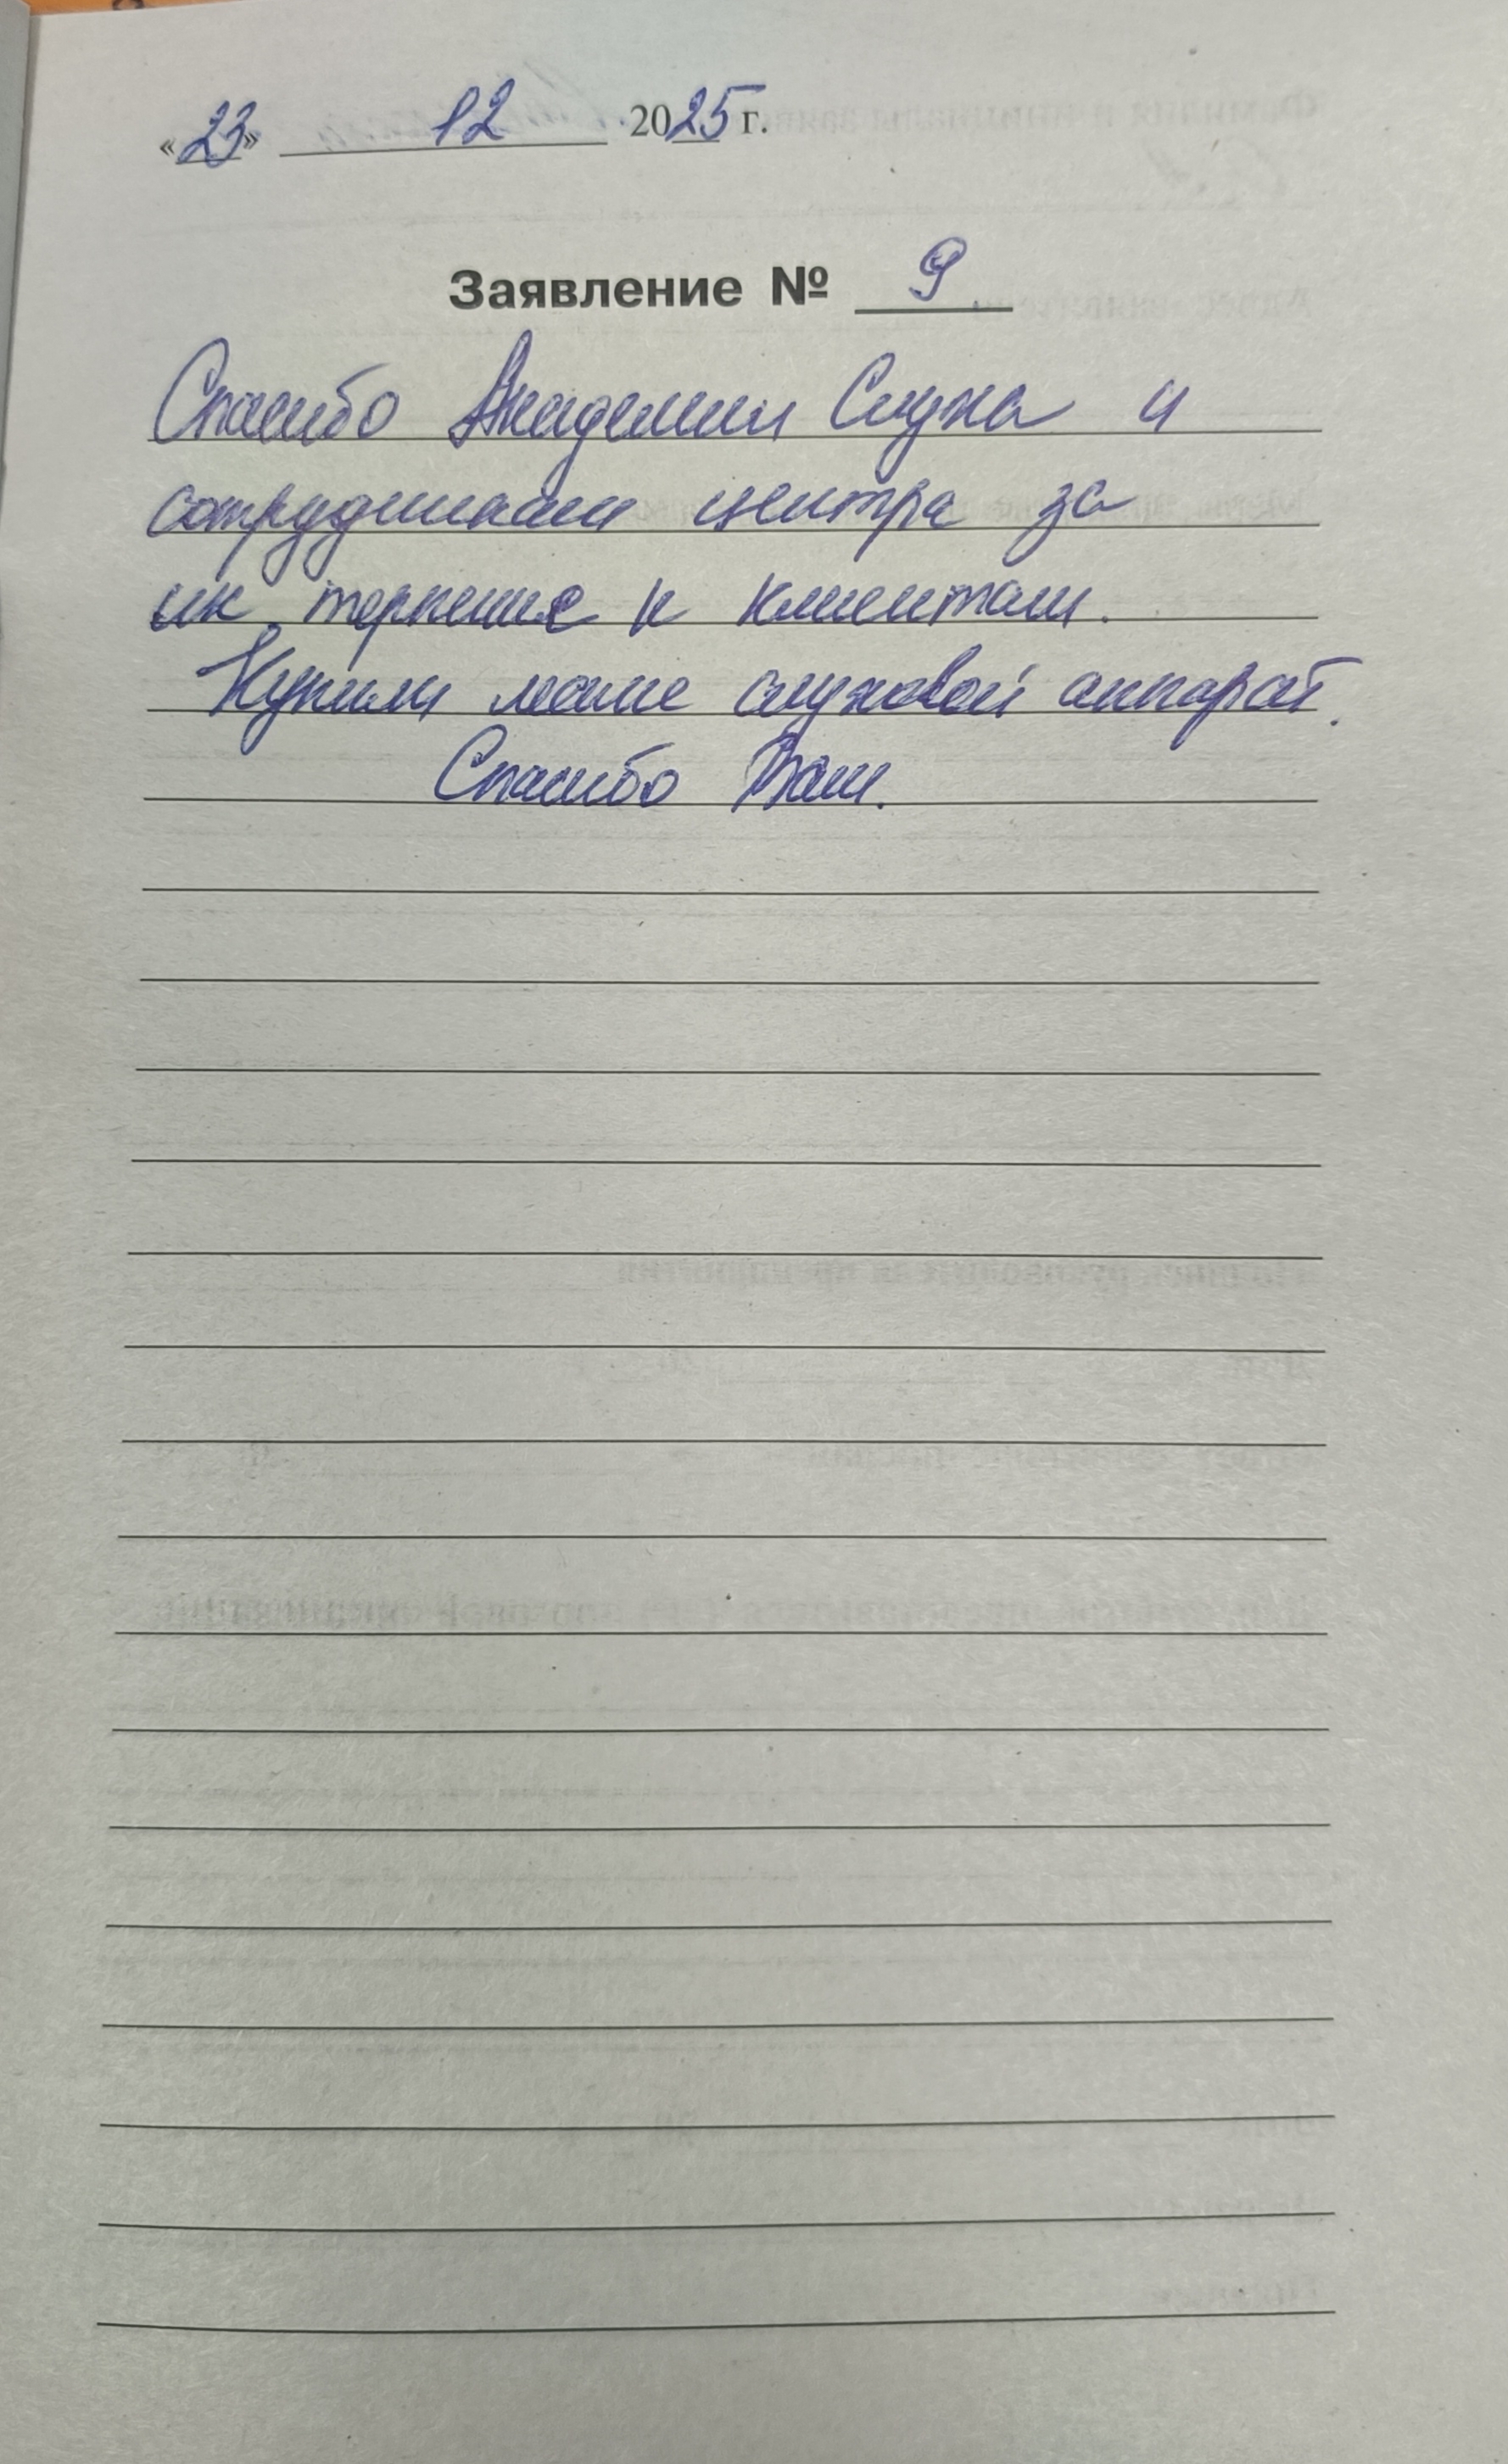 «23» 12 2025 г.
Заявление № 9
Спасибо Академии Слуха и
сотрудникам центра за
их терпение к клиентам.
Купили маме слуховой аппарат.
Спасибо Вам.